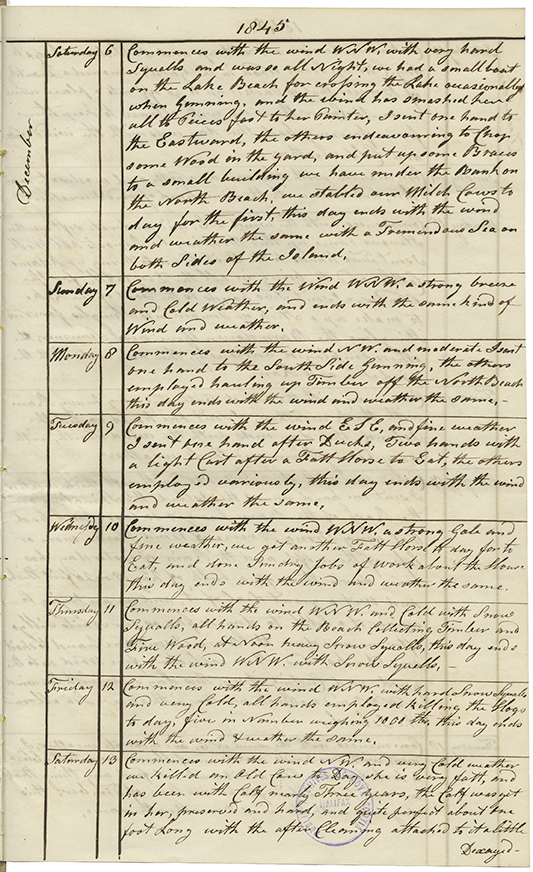 1845
December
Saturday 6 Commences with the wind WNW, with very hard
Squalls and was so all Night, we had a small boat
on the Lake Beach for crossing the Lake occasionally
when Gunning, and the wind has smashed her
all to Peices fast to her Painter, I sent one hand to
the Eastward, the others endeavouring to Chop
some Wood in the yard, and put up some Braces
to a small building we have under the Bank on
the North Beach, we stabled our Milch Cows to
day for the first, this day ends with the wind
and weather the same with a Tremendous Sea on
both Sides of the Island.
Sunday 7 Commences with the Wind WNW. a strong breeze
and Cold Weather, and ends with the same kind of
Wind and weather.
Monday 8 Commences with the wind NW. and moderate I sent
one hand to the South Side Gunning, the others
employed hauling up Timber off the North Beach
this day ends with the wind and weather the same,-
Tuesday 9 Commences with the wind ESE, and fine weather
I sent one hand after Ducks, Two hands with
a light Cart after a Fatt Horse to Eat, the others
employ'd variously, this day ends with the wind
and weather the same,
Wednesday 10 Commences with the wind WNW a strong Gale and
fine weather, we got another Fatt Horse to day for to
Eat, and done Sunday Jobs of work about the House
this day ends with the wind and weather the same.
Thursday 11 Commences with the wind WNW. and Cold with Snow
Squalls, all hands on the Beach Collecting Timber and
Fire Wood, at Noon heavy Snow Squalls, this day ends
with the wind WNW. with Snow Squalls,-
Friday 12 Commences with the wind WNW. with hard Snow Squalls
and very Cold, all hands employed killing the Hogs
to day, five in Number weighing 1000 lbs this day ends
with the wind & weather the same.
Saturday 13 Commences with the wind NW. and very Cold weather
we killed an Old Cow to Day, she is very fatt, and
has been with Calf nearly Three years, the Calf was yet
in her, preserved and hard, and quite perfect about one
foot Long with the after Cleaning attached to it a little
Decayed-
HALIFAX